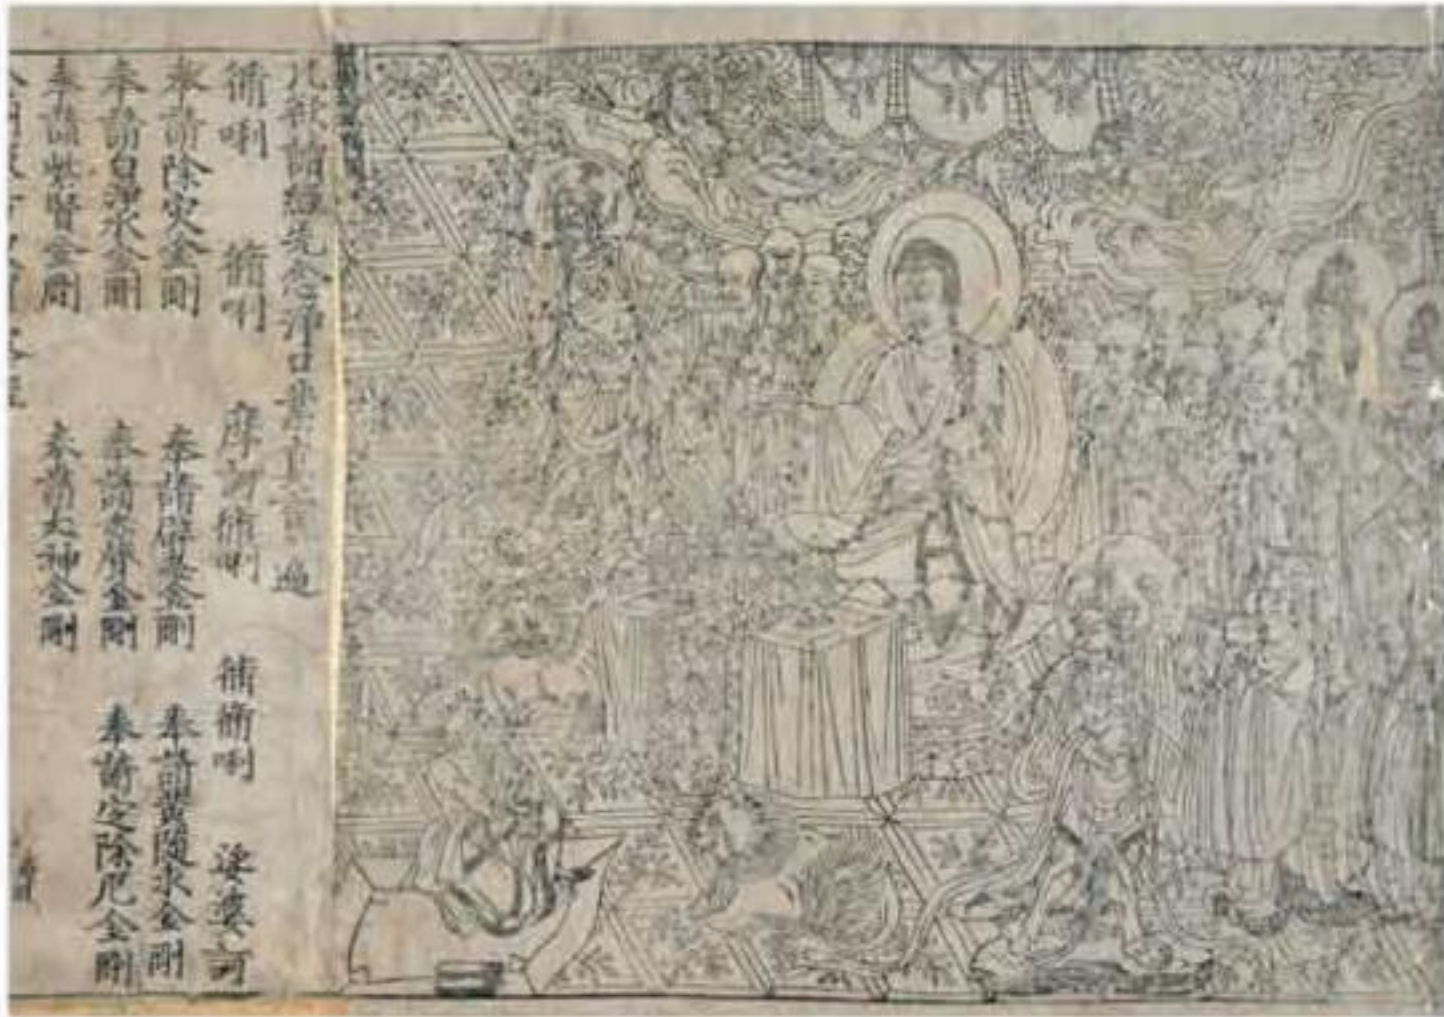 凡欲讀經先念淨口業真言遍
脩唎 脩唎 摩訶脩唎 脩脩唎 娑婆訶
奉請除災金剛 奉請辟毒金剛 奉請黃隨求金剛
奉請白淨水金剛 奉請赤聲金剛 奉請定除厄金剛
奉請紫賢金剛 奉請大神金剛